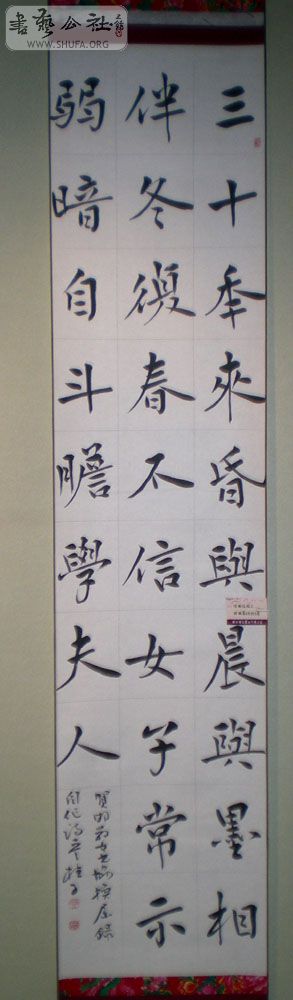 書藝公社
WWW.SHUFA.ORG
三十年來昏與晨與墨相
伴冬復春不信女子常示
弱暗自斗瞻學夫人